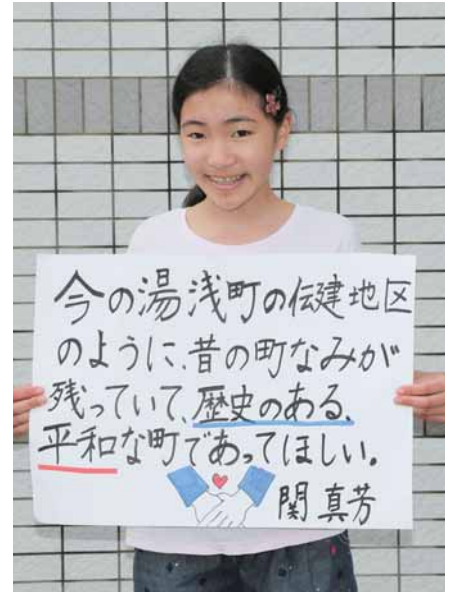 今の湯浅町の伝建地区
のように、昔の町なみが
残っていて、歴史のある、
平和な町であってほしい。
関真芳